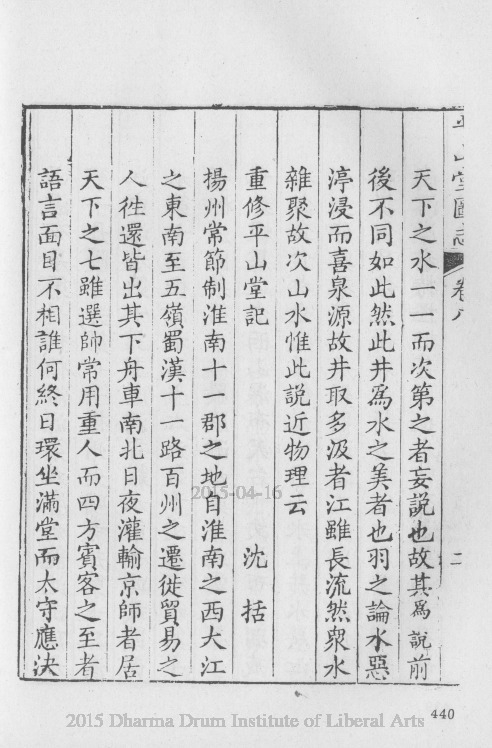 平山堂圖志
卷八
二
天下之水一一而次第之者妄說也故其爲說前
後不同如此然此井爲水之美者也羽之論水惡
渟浸而喜泉源故井取多汲者江雖長流然衆水
雜聚故次山水惟此說近物理云
重修平山堂記
沈括
揚州常節制淮南十一郡之地自淮南之西大江
之東南至五嶺蜀漢十一路百州之遷徙貿易之
人徃還皆出其下舟車南北日夜灌輸京師者居
天下之七雖選師常用重人而四方賓客之至者
語言面目不相誰何終日環坐滿堂而太守應決
2015-04-16
440
2015 Dharma Drum Institute of Liberal Arts